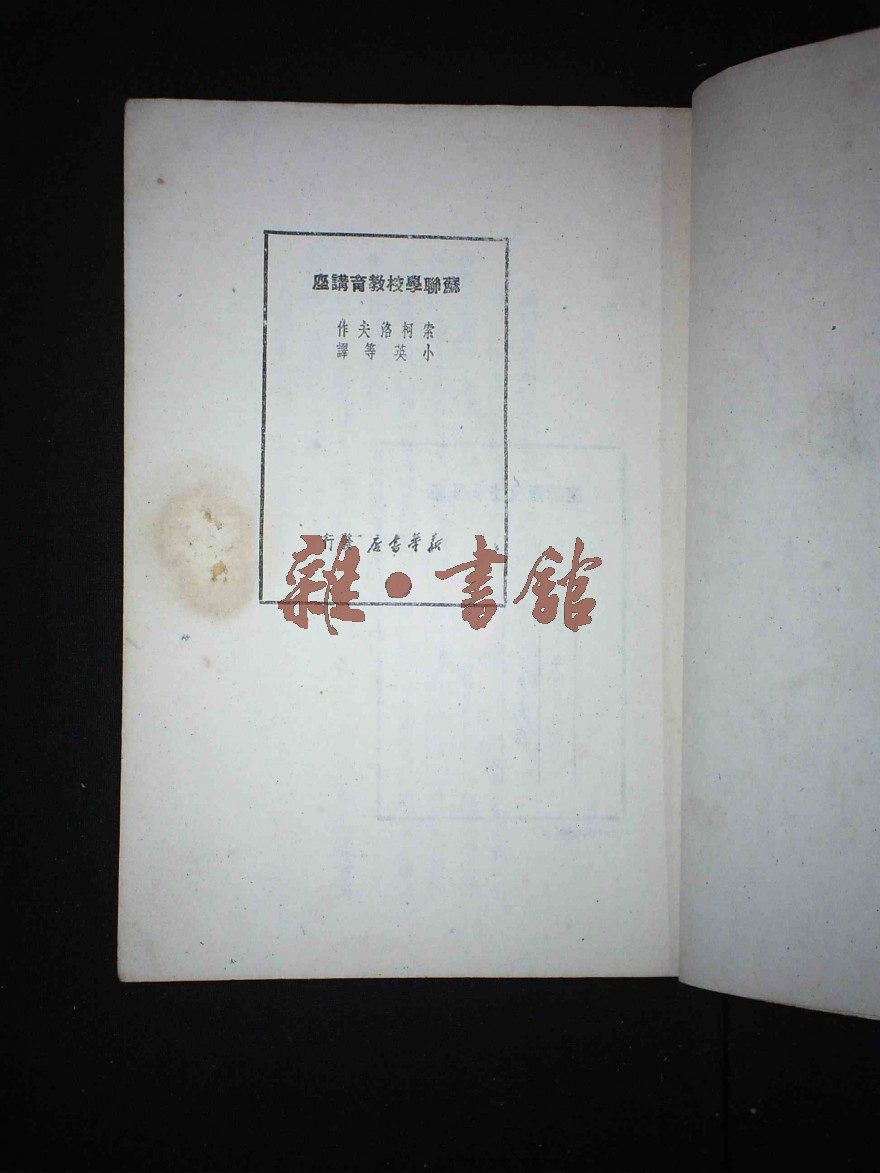 蘇聯學校教育講座
索柯洛夫作
小英等譯
新華書店發行
雜·書館